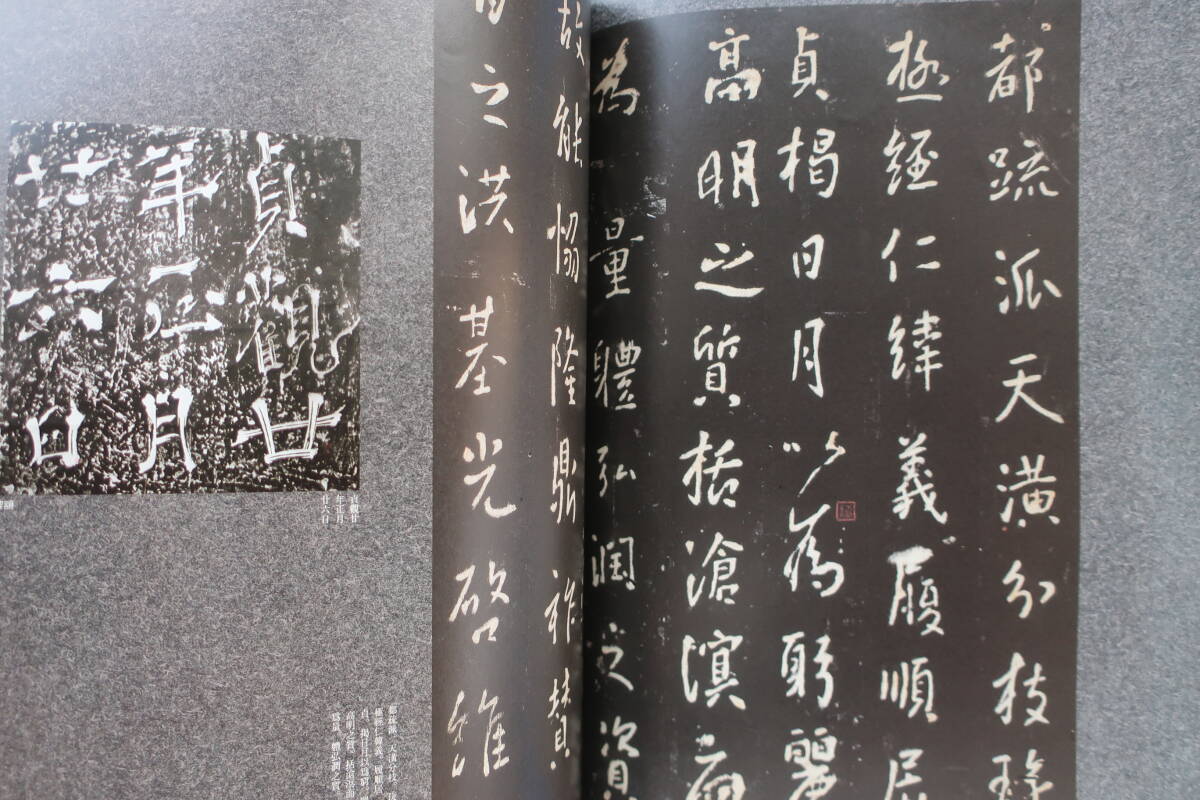 都疏派天潢分枝琁
極經仁緯義履順居
貞揭日月以為躬麗
高明之質括滄溟而
為量體弘潤之資
故能協隆鼎祚贊
百之洪基光啓維
貞觀廿
年正月
廿六日
貞觀廿
年正月
廿六日